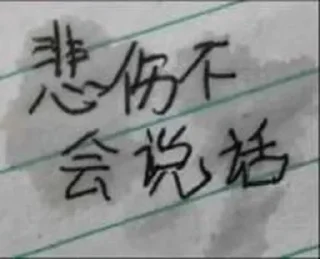 悲伤不
会说话